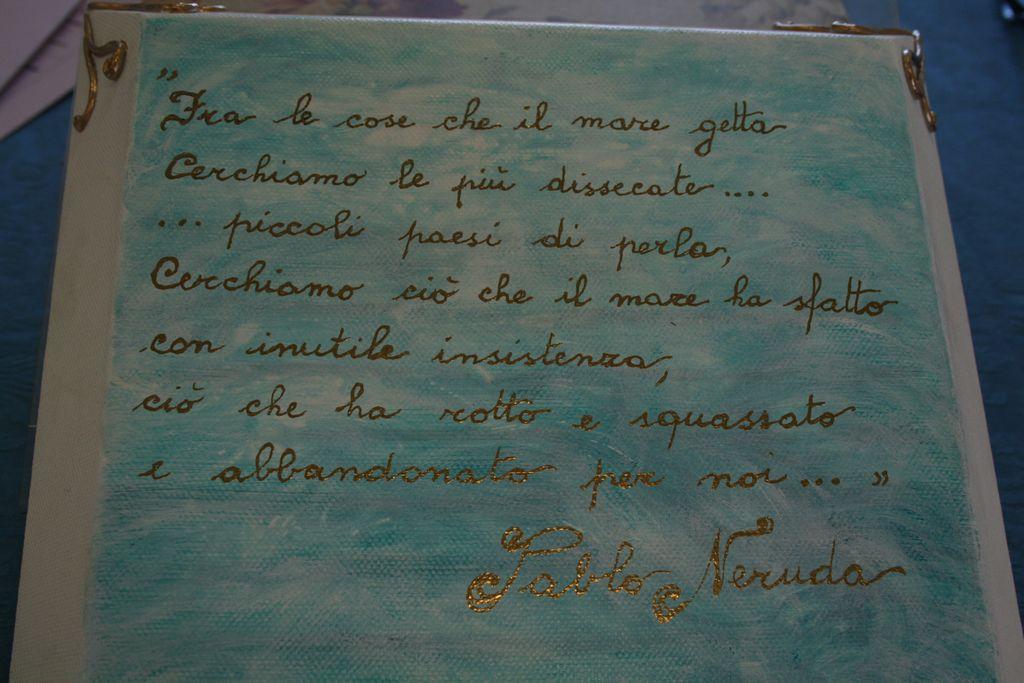 "Fra le cose che il mare getta
Cerchiamo le più dissecate....
... piccoli paesi di perla,
Cerchiamo ciò che il mare ha sfatto
con inutile insistenza,
ciò che ha rotto e squassato
e abbandonato per noi... "
Pablo Neruda